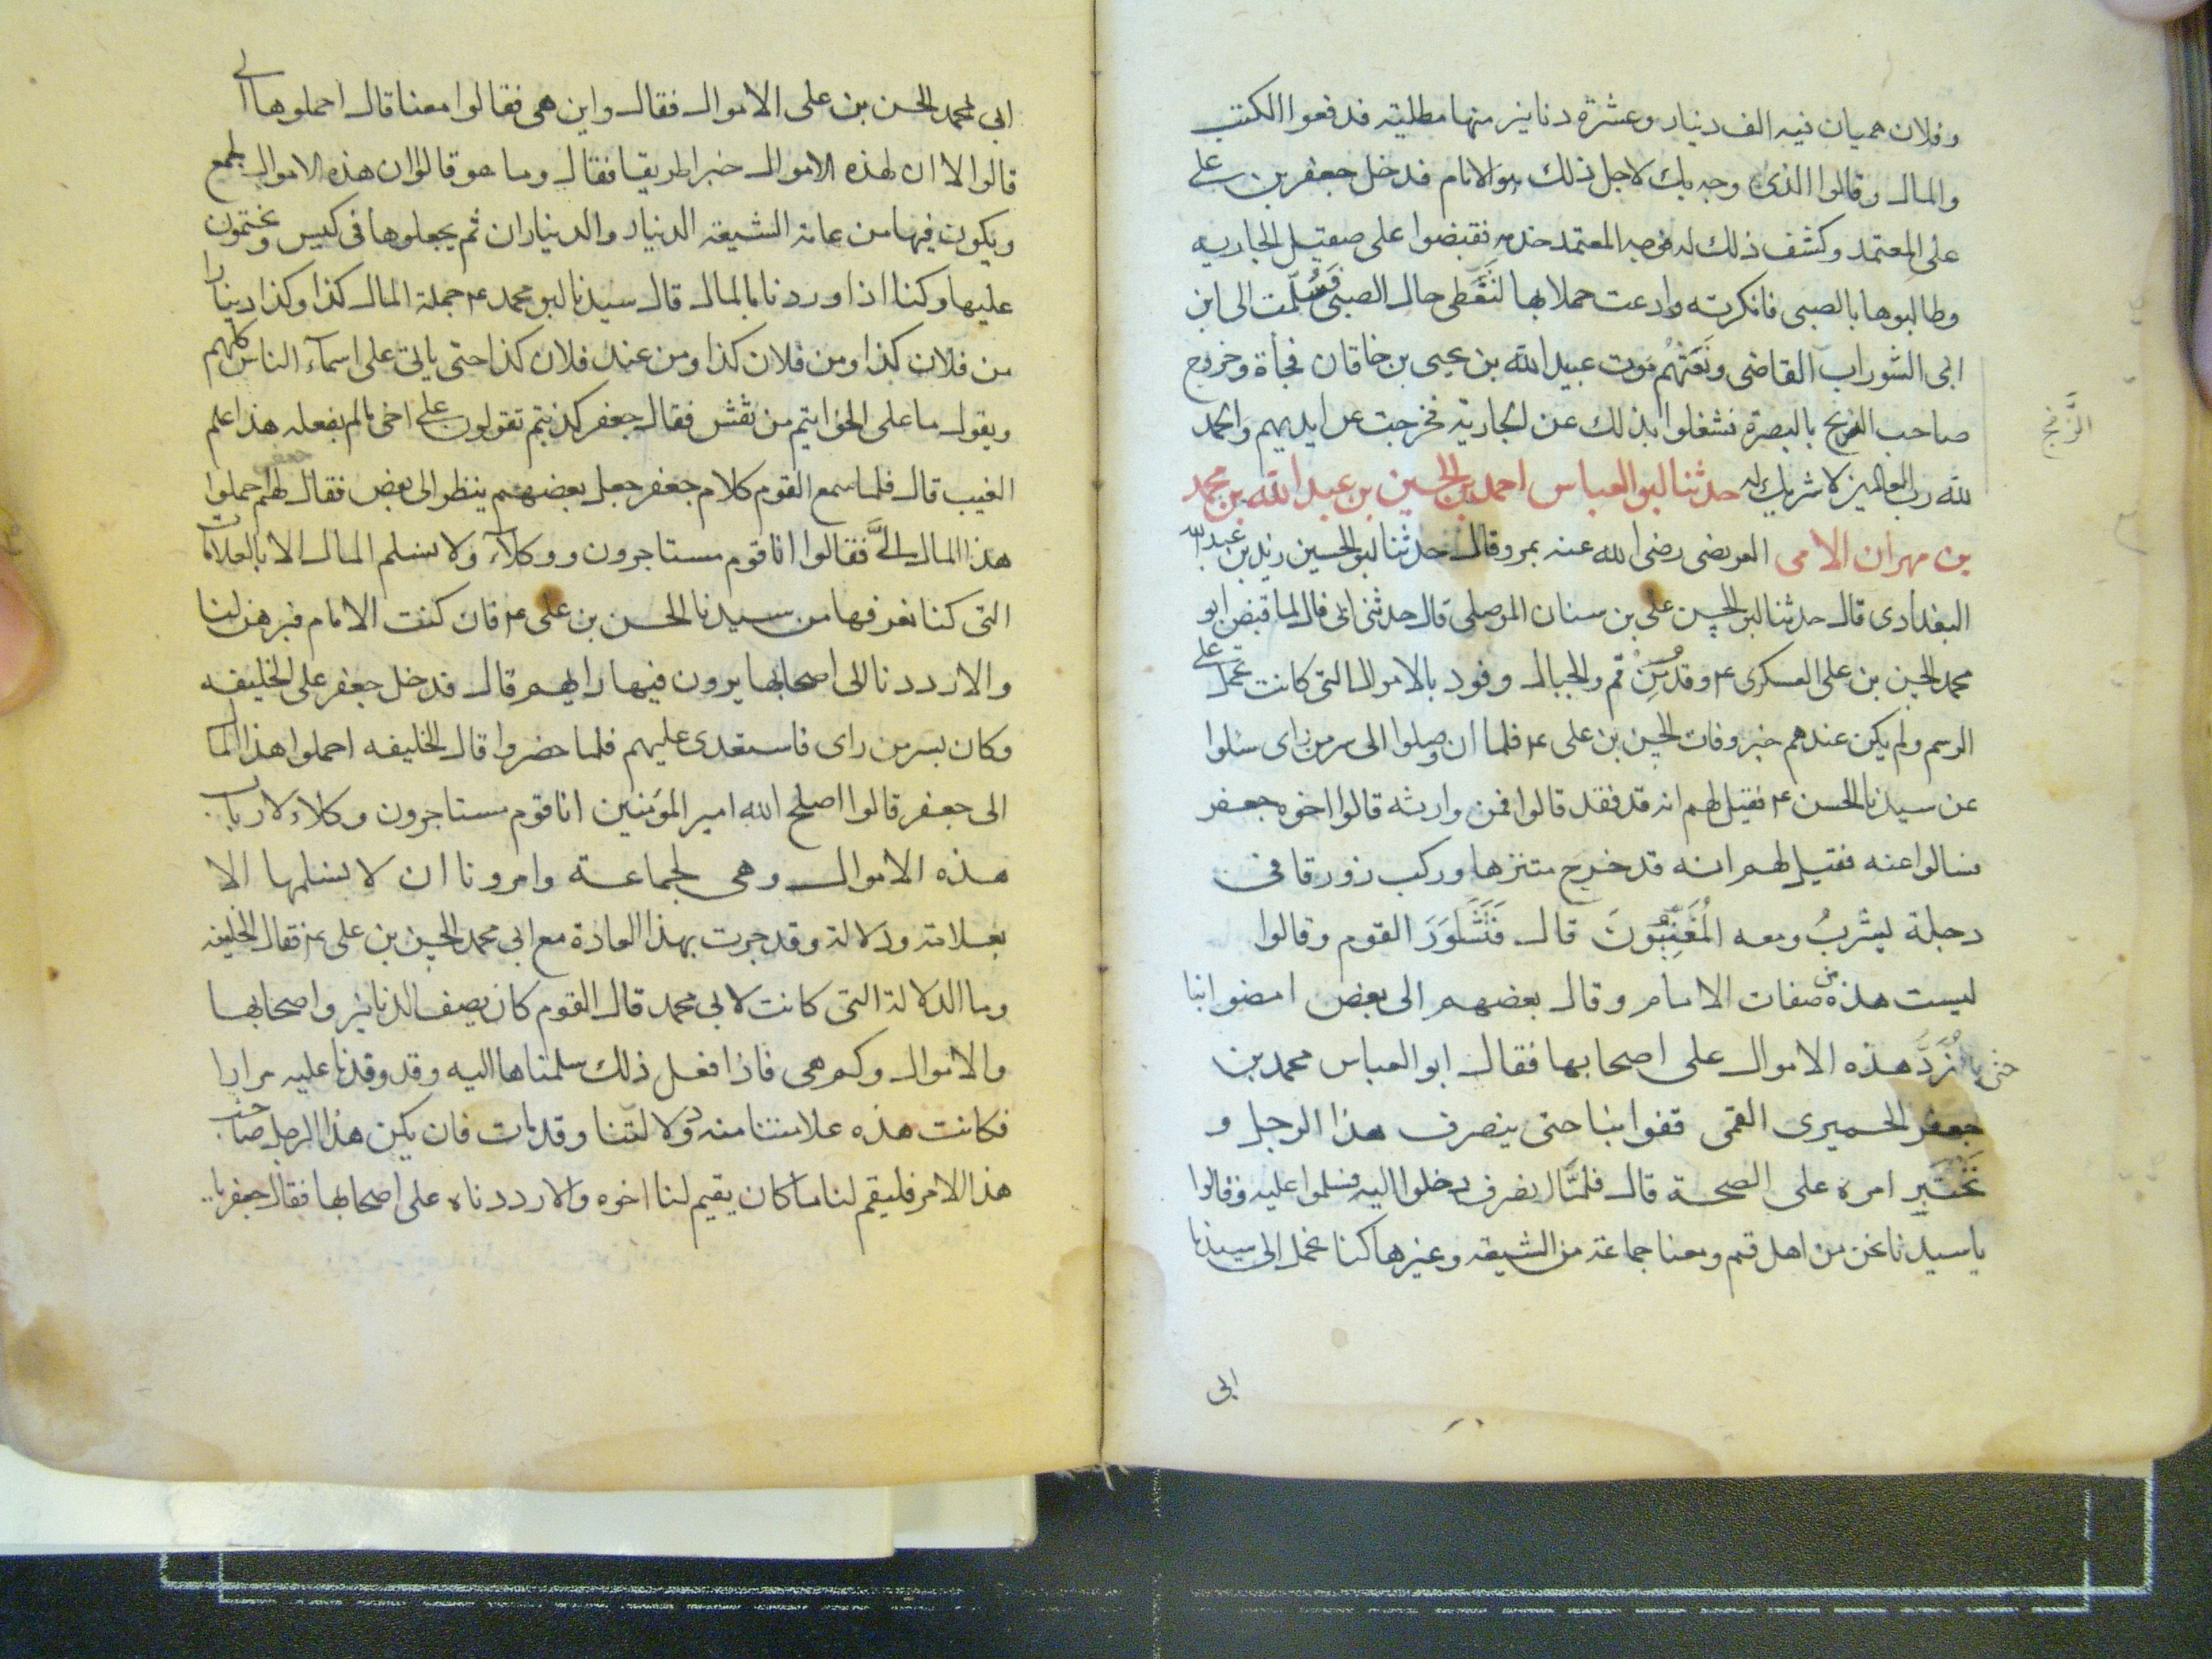 وفلان هميان فيه الف دينار وعشرة دنانير منها مطلية فدفعوا الكتب
والمال وقالوا الذى وجه بك لاجل ذلك هو الامام فدخل جعفر بن على
على المعتمد وكشف ذلك له فوجه المعتمد خدمه فقبضوا على صقيل الجاريه
وطالبوها بالصبى فانكرته وادعت حملا بها لتغطى حال الصبى فسلمت الى ابن
ابى الشوراب القاضى وبغتهم موت عبيد الله بن يحيى بن خاقان فجأة وخروج
صاحب الزنج بالبصرة فشغلوا بذلك عن الجارية فخرجت عن ايديهم والحمد
الزنج
لله رب العالمين لا شريك له حدثنا ابو العباس احمد بن الحسين بن عبد الله بن محمد
بن مهران الامى العروضى رضى الله عنه بمرو قال حدثنا ابو الحسين زيد بن عبد الله
البغدادى قال حدثنا ابو الحسن على بن سنان الموصلى قال حدثنى ابى قال لما قبض ابو
محمد الحسن بن على العسكرى ع وفد من قم والجبال وفود بالاموال التى كانت تحمل على
الرسم ولم يكن عندهم خبر وفات الحسن بن على ع فلما ان وصلوا الى سر من راى سئلوا
عن سيدنا الحسن ع فقيل لهم انه قد فقد قالوا فمن وارثه قالوا اخوه جعفر
فسالوا عنه فقيل لهم انه قد خرج متنزها وركب زورقا فى
دجلة يشرب ومعه المغنيون قال فتشاور القوم وقالوا
ليست هذه من صفات الامام وقال بعضهم الى بعض امضوا بنا
حتى نرد هذه الاموال على اصحابها فقال ابو العباس محمد بن
جعفر الحميرى القمى قفوا بنا حتى ينصرف هذا الرجل و
نختبر امره على الصحة قال فلما انصرف دخلوا اليه فسلموا عليه وقالوا
يا سيدنا نحن من اهل قم ومعنا جماعة من الشيعه وغيرها كنا نحمل الى سيدنا
ابى
ابى محمد الحسن بن على الاموال فقال واين هى فقالوا معنا قال احملوها الى
قالوا لا ان لهذه الاموال خبرا طريقا فقال وما هو قالوا ان هذه الاموال تجمع
ويكون فيها من عامة الشيعه الدينار والديناران ثم يجعلوها فى كيس ويختمون
عليها وكنا اذا وردنا بالمال قال سيدنا ابو محمد ع جملة المال كذا وكذا دينارا
من فلان كذا ومن فلان كذا ومن عند فلان كذا حتى ياتى على اسمآء الناس كلهم
ويقول ما على الخواتيم من نقش فقال جعفر كذبتم تقولون على اخى ما لم يفعله هذا علم
الغيب قال فلما سمع القوم كلام جعفر جعل بعضهم ينظر الى بعض فقال لهم احملوا
هذا المال الىَّ فقالوا انا قوم مستاجرون ووكلآء ولا نسلم المال الا بالعلامات
التى كنا نعرفها من سيدنا الحسن بن على ع فان كنت الامام فبرهن لنا
والا رددنا الى اصحابها يرون فيها رايهم قال فدخل جعفر على الخليفه
وكان بسر من راى فاستعدى عليهم فلما حضروا قال الخليفه احملوا هذا المال
الى جعفر قالوا اصلح الله امير المؤمنين انا قوم مستاجرون وكلاء لارباب
هذه الاموال وهى لجماعة وامرونا ان لا نسلمها الا
بعلامة ودلالة وقد جرت بهذا العادة مع ابى محمد الحسن بن على ع فقال الخليفه
وما الدلالة التى كانت لابى محمد قال القوم كان يصف الدنانير واصحابها
والاموال وكم هى فاذا فعل ذلك سلمناها اليه وقد وفدنا عليه مرارا
فكانت هذه علامتنا منه ودلالتنا وقد مات فان يكن هذا الرجل صاحب
هذا الامر فليقم لنا ما كان يقيم لنا اخوه والا رددناه على اصحابها فقال جعفر يا